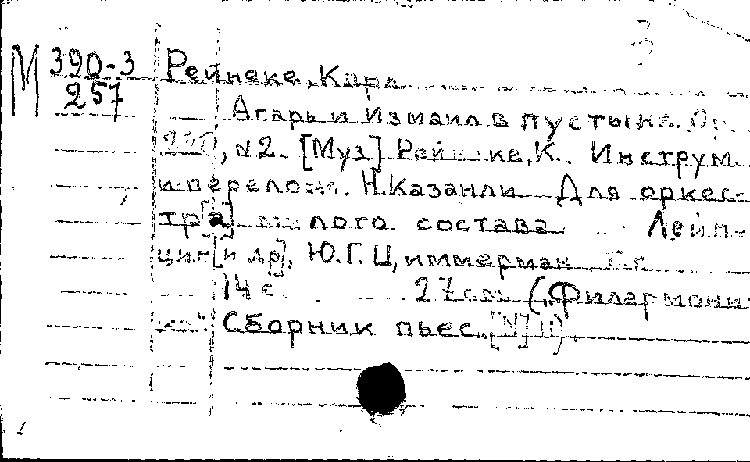 3
М 390-3 Рейнеке, Карл
257
Агарь и Измаил в пустыне. Ор.
220, N2. [Муз] Рейнеке, К. Инструм.
и перелож. Н. Казанли Для оркес-
тр[а] малого состава Лейп-
циг [и др], Ю.Г. Циммерман
14 с. 27 см („Филармони-
ка". Сборник пьес. [N] 11).